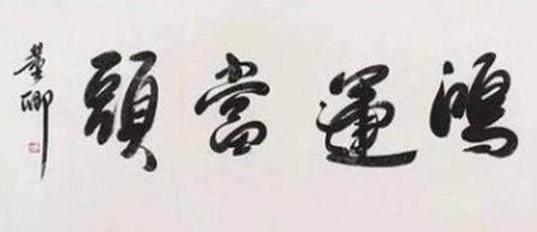 鴻運當頭
董卿